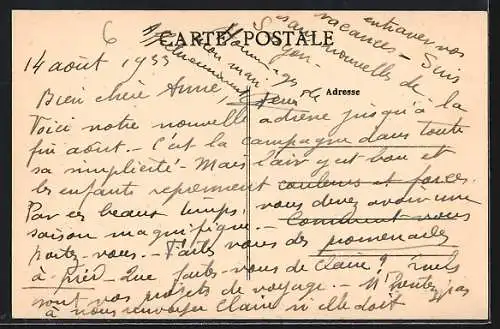 6
CARTE POSTALE
Adresse
entraver vos
vacances - Suis
sans nouvelles de la
Hommages
mon mari
14 août 1933
Bien chère Anne,
Voici notre nouvelle adresse jusqu'à
fin août - C'est la campagne dans toute
sa simplicité - Mais l'air y est bon et
les enfants reprennent couleurs et forces.
Par ces beaux temps, vous devez avoir une
saison magnifique - Comment vous
portez-vous - Faites vous des promenades
à pied - Que faites-vous de Claire? Quels
sont vos projets de voyage - N'hésitez pas
à nous renvoyer Claire si elle doit